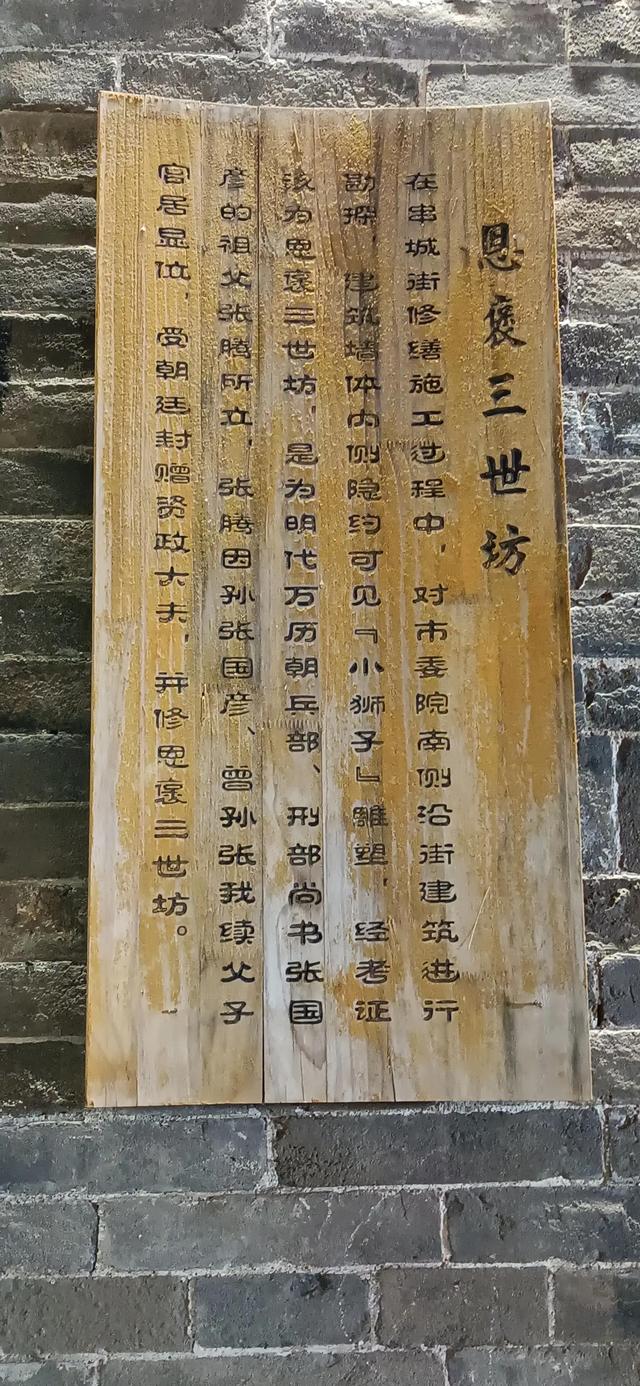 恩褒三世坊
在串城街修缮施工过程中，对市委院南侧沿街建筑进行
勘探，建筑墙体内侧隐约可见『小狮子』雕塑，经考证
该为恩褒三世坊，是为明代万历朝兵部、刑部尚书张国
彦的祖父张腾所立，张腾因孙张国彦、曾孙张我续父子
官居显位，受朝廷封赠资政大夫，并修恩褒三世坊。